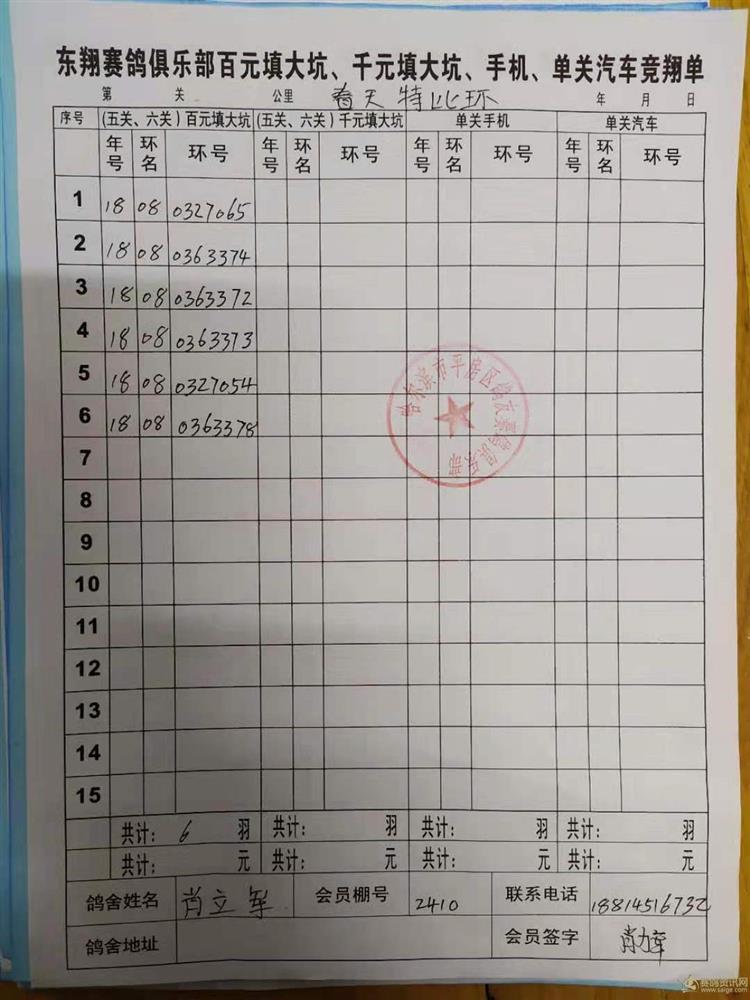 东翔赛鸽俱乐部百元填大坑、千元填大坑、手机、单关汽车竞翔单
第 关 公里 春天特比环 年 月 日
序号 (五关、六关)百元填大坑 (五关、六关)千元填大坑 单关手机 单关汽车
年号 环名 环号 年号 环名 环号 年号 环名 环号 年号 环名 环号
1 18 08 0327065
2 18 08 0363374
3 18 08 0363372
4 18 08 0363373
5 18 08 0327054
6 18 08 0363378
哈尔滨市平房区鸽友赛鸽俱乐部
7
8
9
10
11
12
13
14
15
共计: 6 羽 共计: 羽 共计: 羽 共计: 羽
共计: 元 共计: 元 共计: 元 共计: 元
鸽舍姓名 肖立军 会员棚号 2410 联系电话 18814516732
鸽舍地址 会员签字 肖立军
赛鸽资讯网
www.saige.com